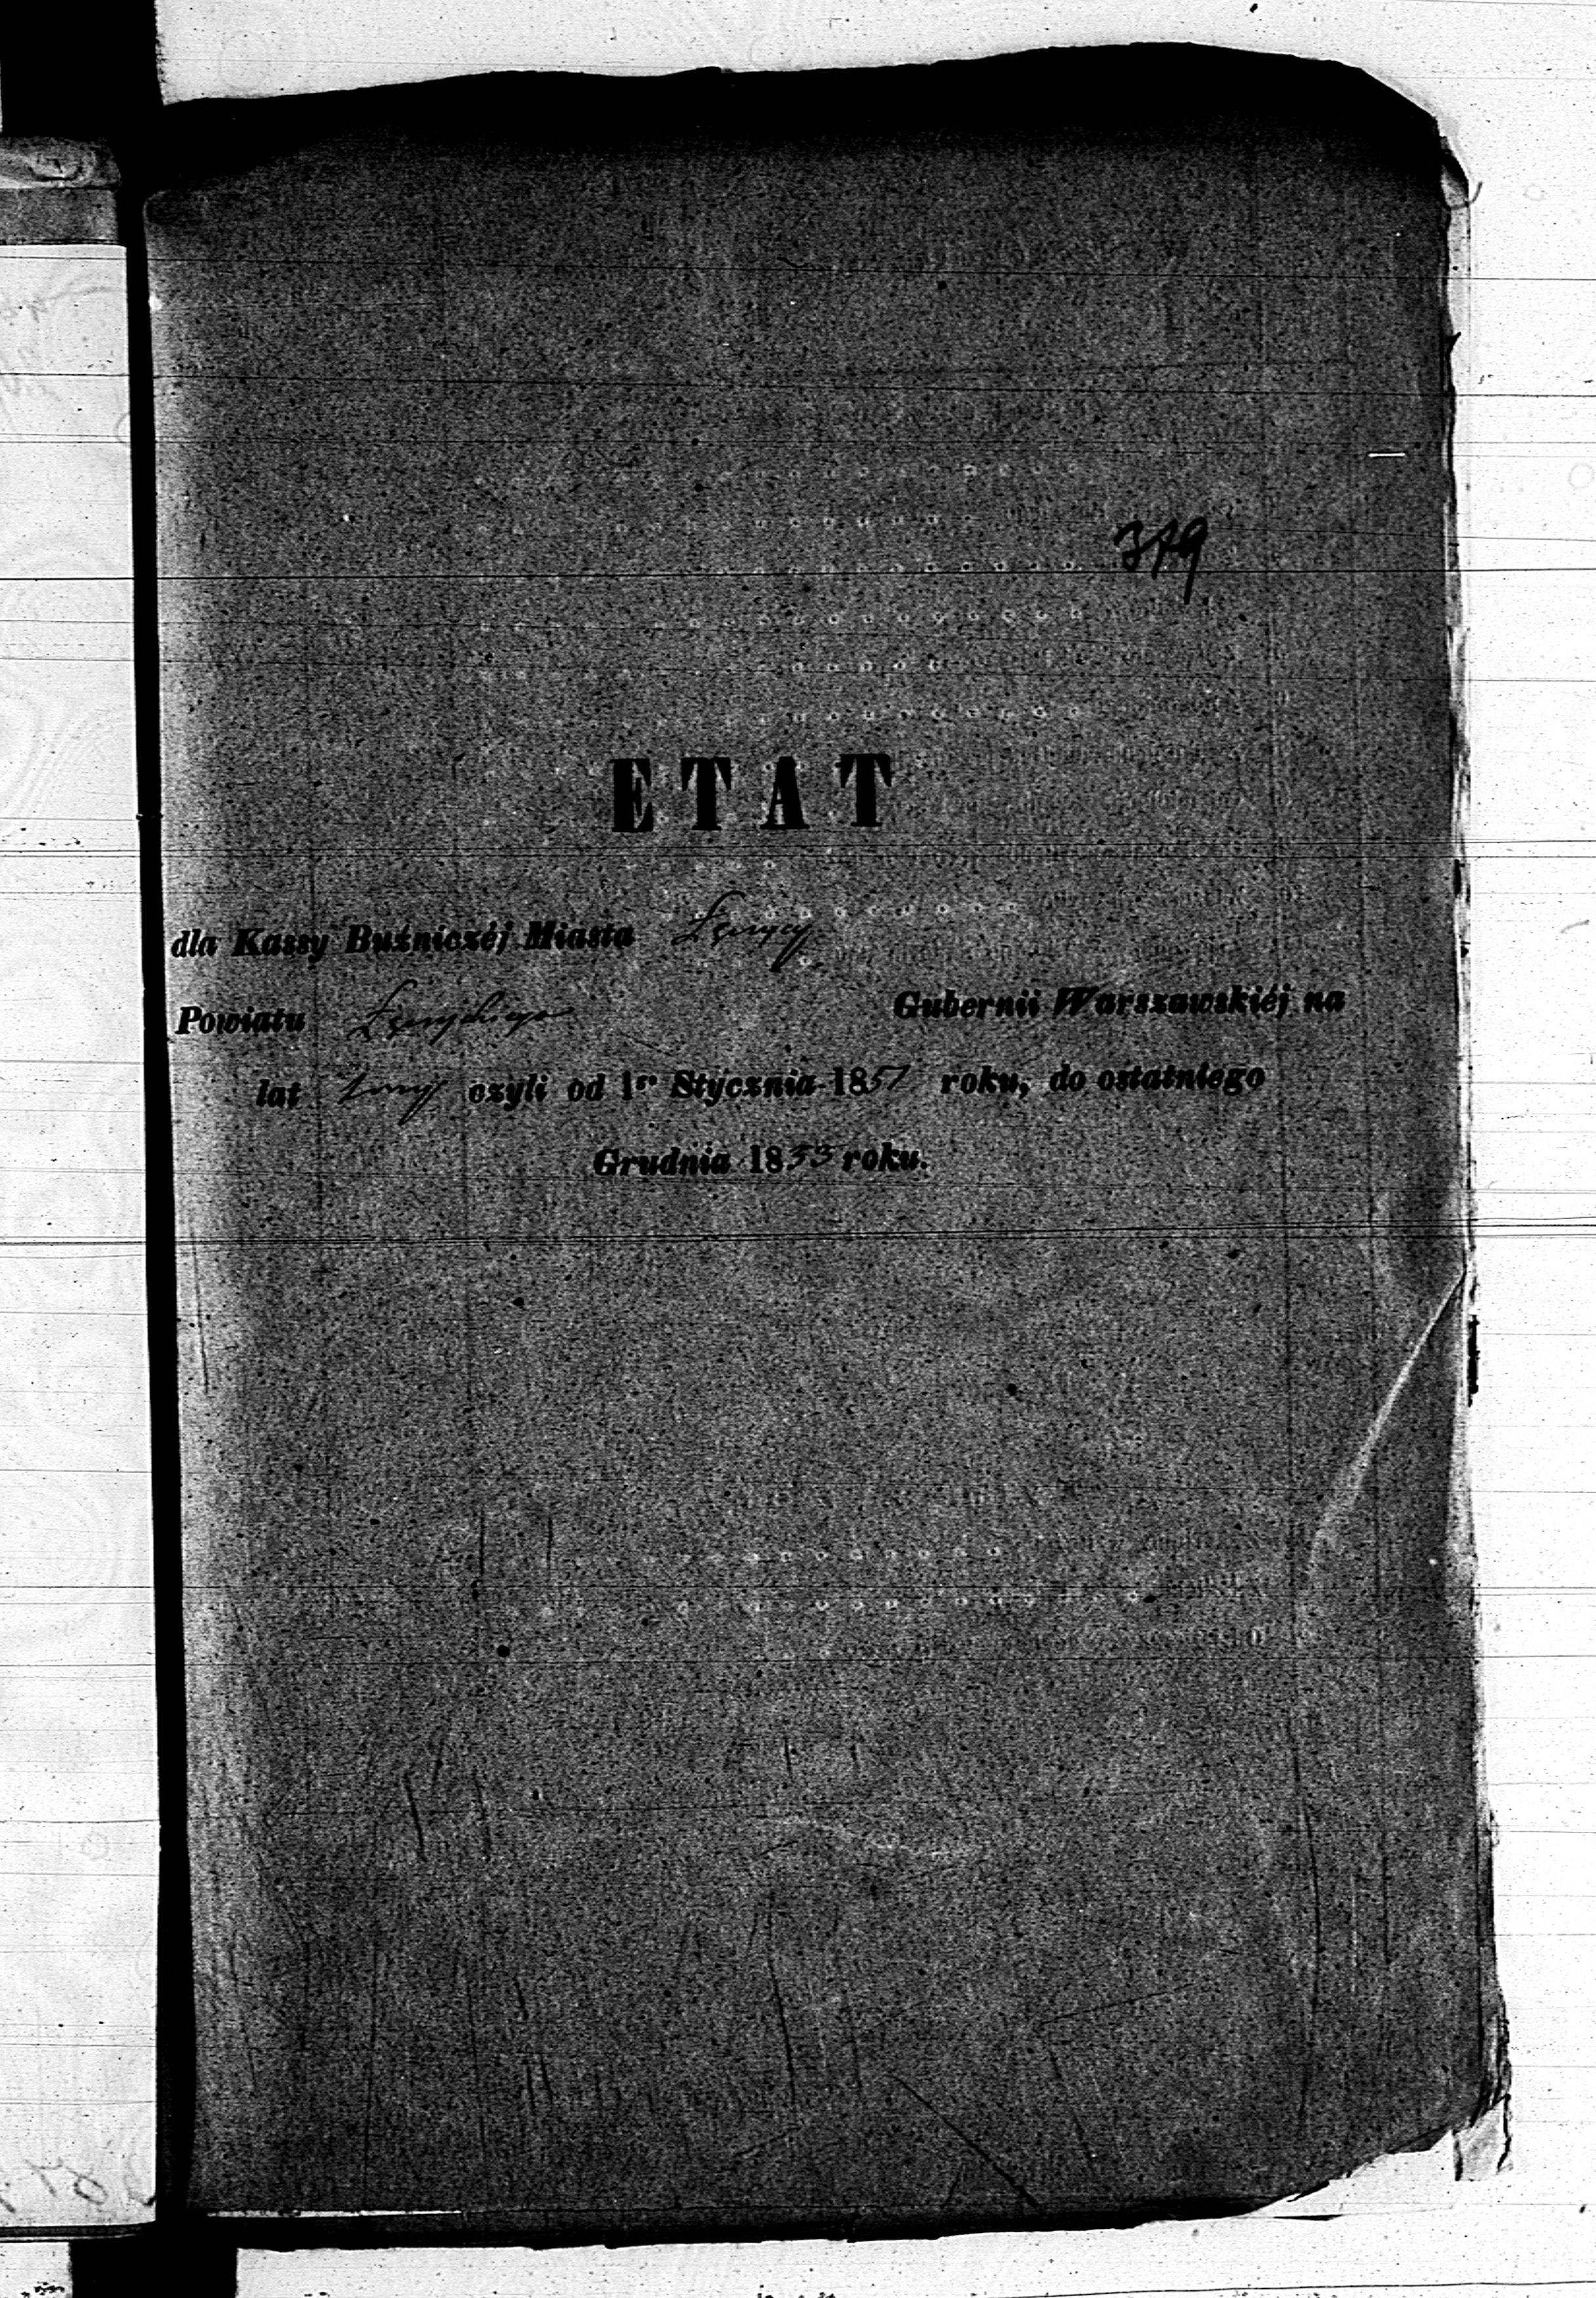 379
ETAT
dla Kassy Buźniczéj Miasta Łęczycy
Powiatu Łęczyckiego Gubernii Warszawskiéj na
lat trzy czyli od 1go Stycznia 1851 roku, do ostatniego
Grudnia 1853 roku.